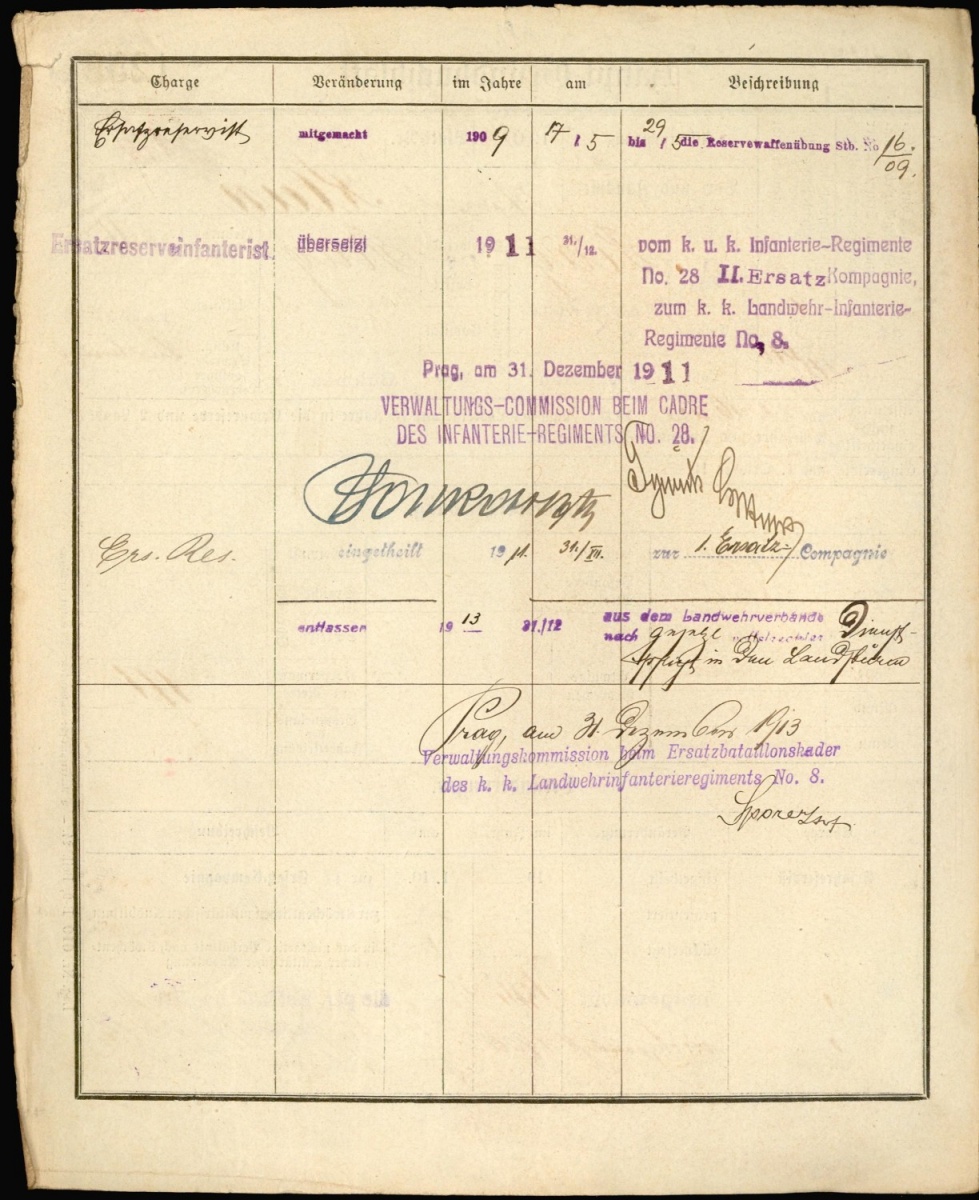 Charge Veränderung im Jahre am Beschreibung
Ersatzreservist mitgemacht 1909 17/5 bis 29/5 die Reservewaffenübung Stb. No 16./09.
Ersatzreserveinfanterist. übersetzt 1911 31./12. vom k. u. k. Infanterie-Regimente
No. 28 II. Ersatz Kompagnie,
zum k. k. Landwehr-Infanterie-
Regimente No. 8.
Prag, am 31. Dezember 1911
VERWALTUNGS-COMMISSION BEIM CADRE
DES INFANTERIE-REGIMENTS NO. 28.
Ers. Res. eingetheilt 1911. 31./XII. zur 1. Ersatz- Compagnie
entlassen 1913 31./12 aus dem Landwehrverbande
nach gesetzl Dienst-
pflicht in den Landsturm
Prag, am 31. Dezember 1913
Verwaltungskommission beim Ersatzbataillonskader
des k. k. Landwehrinfanterieregiments No. 8.